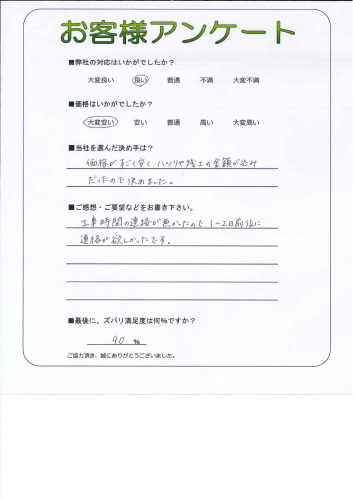 お客様アンケート
■弊社の対応はいかがでしたか？
大変良い 良い 普通 不満 大変不満
■価格はいかがでしたか？
大変安い 安い 普通 高い 大変高い
■当社を選んだ決め手は？
価格がすごく安く、ハツリや残工の金額が込み
だったので決めました。
■ご感想・ご要望などをお書き下さい。
工事時間の連絡が無かったので、1～2日前位に
連絡が欲しかったです。
■最後に、ズバリ満足度は何%ですか？
90 %
ご協力頂き、誠にありがとうございました。